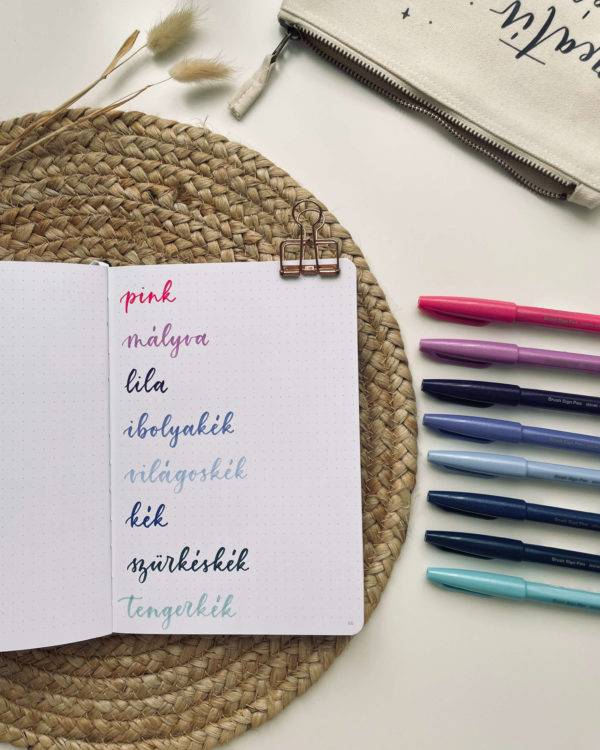 pink
mályva
lila
ibolyakék
világoskék
kék
szürkéskék
tengerkék
Brush Sign Pen
Brush Sign Pen
Brush Sign Pen
Brush Sign Pen
Brush Sign Pen
Brush Sign Pen